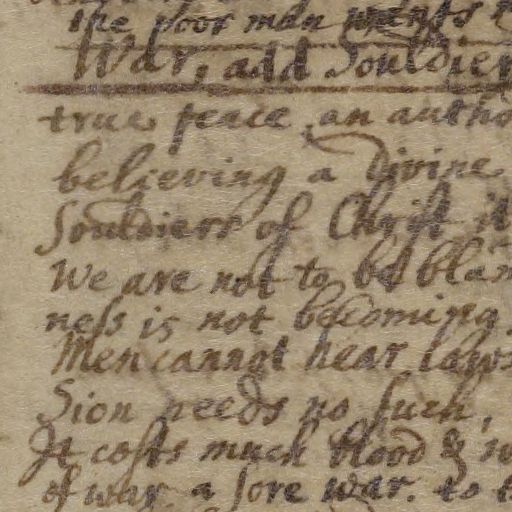 the poor man wants
War, add Souldier
true peace, an autho
believing a Divine
Souldiers of Christ it
We are not to be bla
ness is not becoming
Men cannot hear laws
Sion needs no such,
It costs much blood &
of war a sore war. to